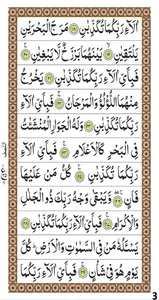 اٰلَآءِ رَبِّكُمَا تُكَذِّبٰنِ ﴿۱۸﴾ مَرَجَ الْبَحْرَيْنِ
يَلْتَقِيٰنِ ﴿۱۹﴾ بَيْنَهُمَا بَرْزَخٌ لَّا يَبْغِيٰنِ ﴿۲۰﴾
فَبِاَيِّ اٰلَآءِ رَبِّكُمَا تُكَذِّبٰنِ ﴿۲۱﴾ يَخْرُجُ
مِنْهُمَا اللُّؤْلُؤُ وَالْمَرْجَانُ ﴿۲۲﴾ فَبِاَيِّ اٰلَآءِ
رَبِّكُمَا تُكَذِّبٰنِ ﴿۲۳﴾ وَلَهُ الْجَوَارِ الْمُنْشَئٰتُ
فِي الْبَحْرِ كَالْاَعْلَامِ ﴿۲۴﴾ فَبِاَيِّ اٰلَآءِ
رَبِّكُمَا تُكَذِّبٰنِ ﴿۲۵﴾ كُلُّ مَنْ عَلَيْهَا
فَانٍ ﴿۲۶﴾ وَّيَبْقٰى وَجْهُ رَبِّكَ ذُو الْجَلٰلِ
وَالْاِكْرَامِ ﴿۲۷﴾ فَبِاَيِّ اٰلَآءِ رَبِّكُمَا تُكَذِّبٰنِ ﴿۲۸﴾
يَسْئَلُهٗ مَنْ فِي السَّمٰوٰتِ وَالْاَرْضِ ؕ كُلَّ
يَوْمٍ هُوَ فِيْ شَاْنٍ ﴿۲۹﴾ فَبِاَيِّ اٰلَآءِ رَبِّكُمَا
3